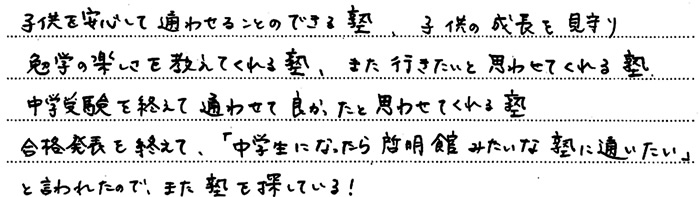 子供を安心して通わせることのできる塾、子供の成長を見守り
勉学の楽しさを教えてくれる塾、また行きたいと思わせてくれる塾
中学受験を終えて通わせて良かったと思わせてくれる塾
合格発表を終えて、「中学生になったら啓明館みたいな塾に通いたい」
と言われたので、また塾を探している!